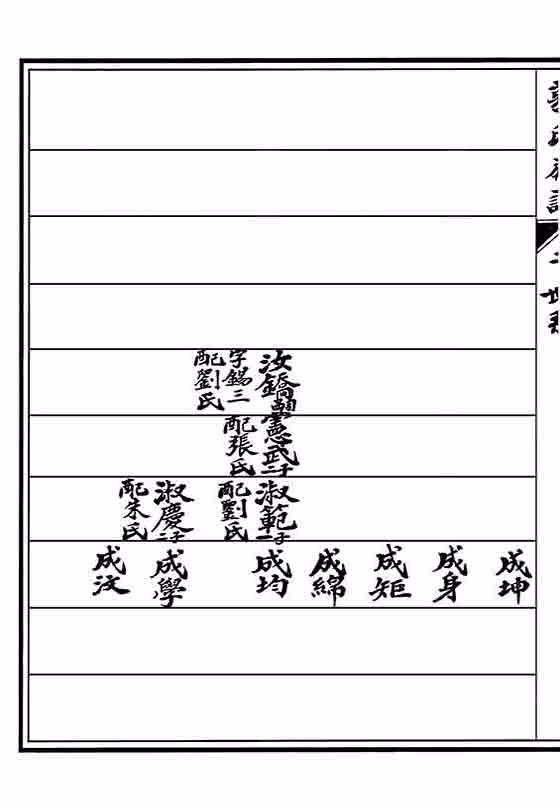 汝鐈
字錫三
配劉氏
憲武二子
配張氏
淑範一子
配劉氏
淑慶二子
配朱氏
成坤
成身
成矩
成綿
成均
成學
成汶